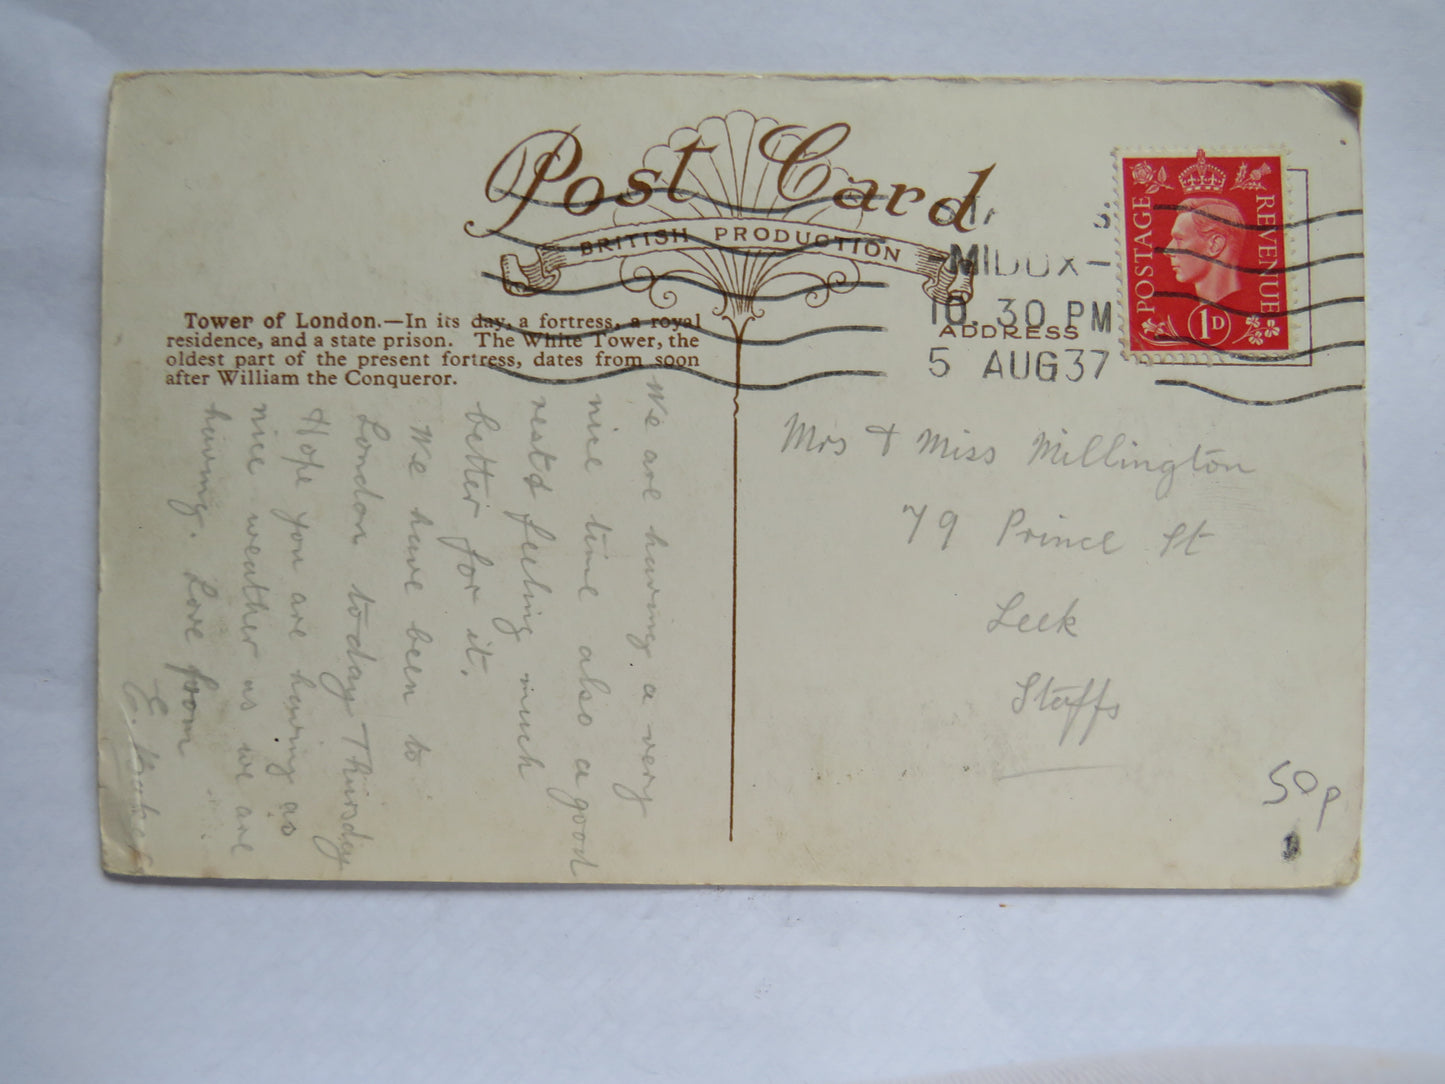 Post Card
BRITISH PRODUCTION
MIDDX
10. 30 PM
5 AUG 37
ADDRESS
POSTAGE
REVENUE
1D
Tower of London.—In its day, a fortress, a royal
residence, and a state prison. The White Tower, the
oldest part of the present fortress, dates from soon
after William the Conqueror.
We are having a very
nice time also a good
rest & feeling much
better for it.
We have been to
London today Thursday
Hope you are having as
nice weather as we are
having. Love from
E.
Mrs & Miss Millington
79 Prince St
Leek
Staffs
50p